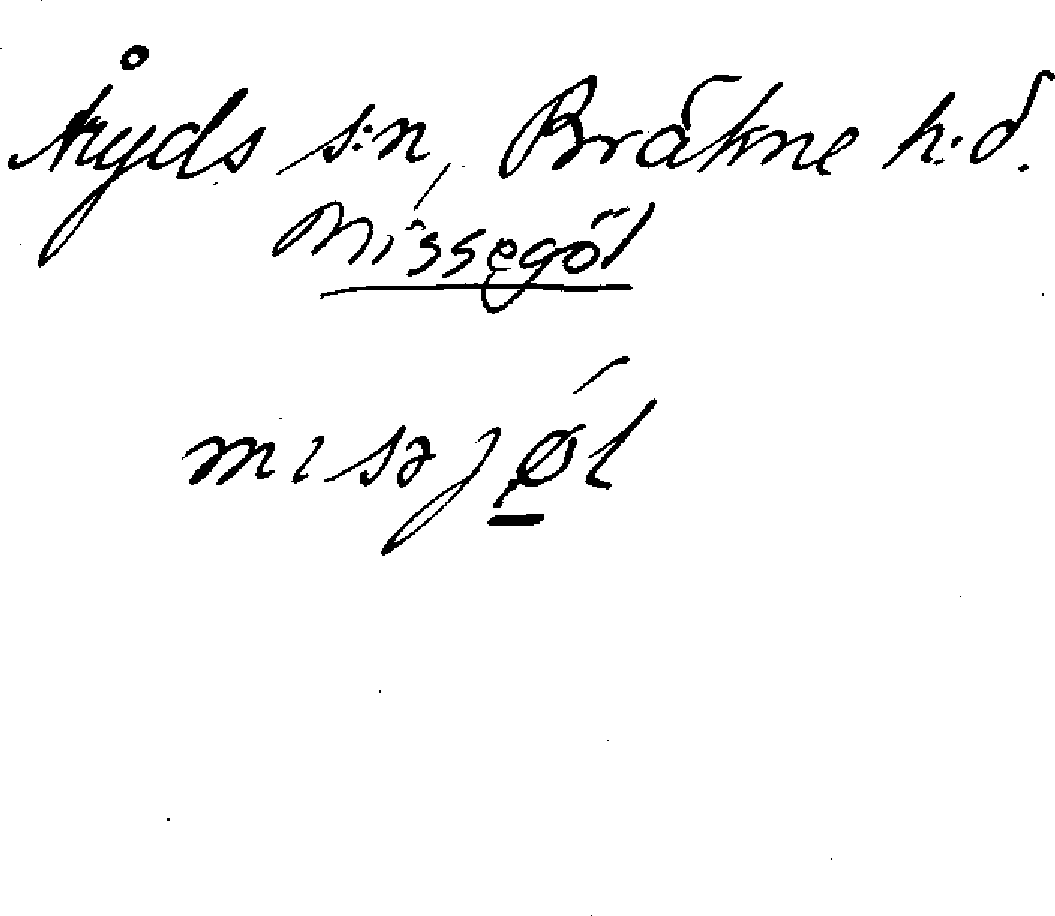 Åryds s:n, Bräkne h.d.
Missegöl
misəjøl